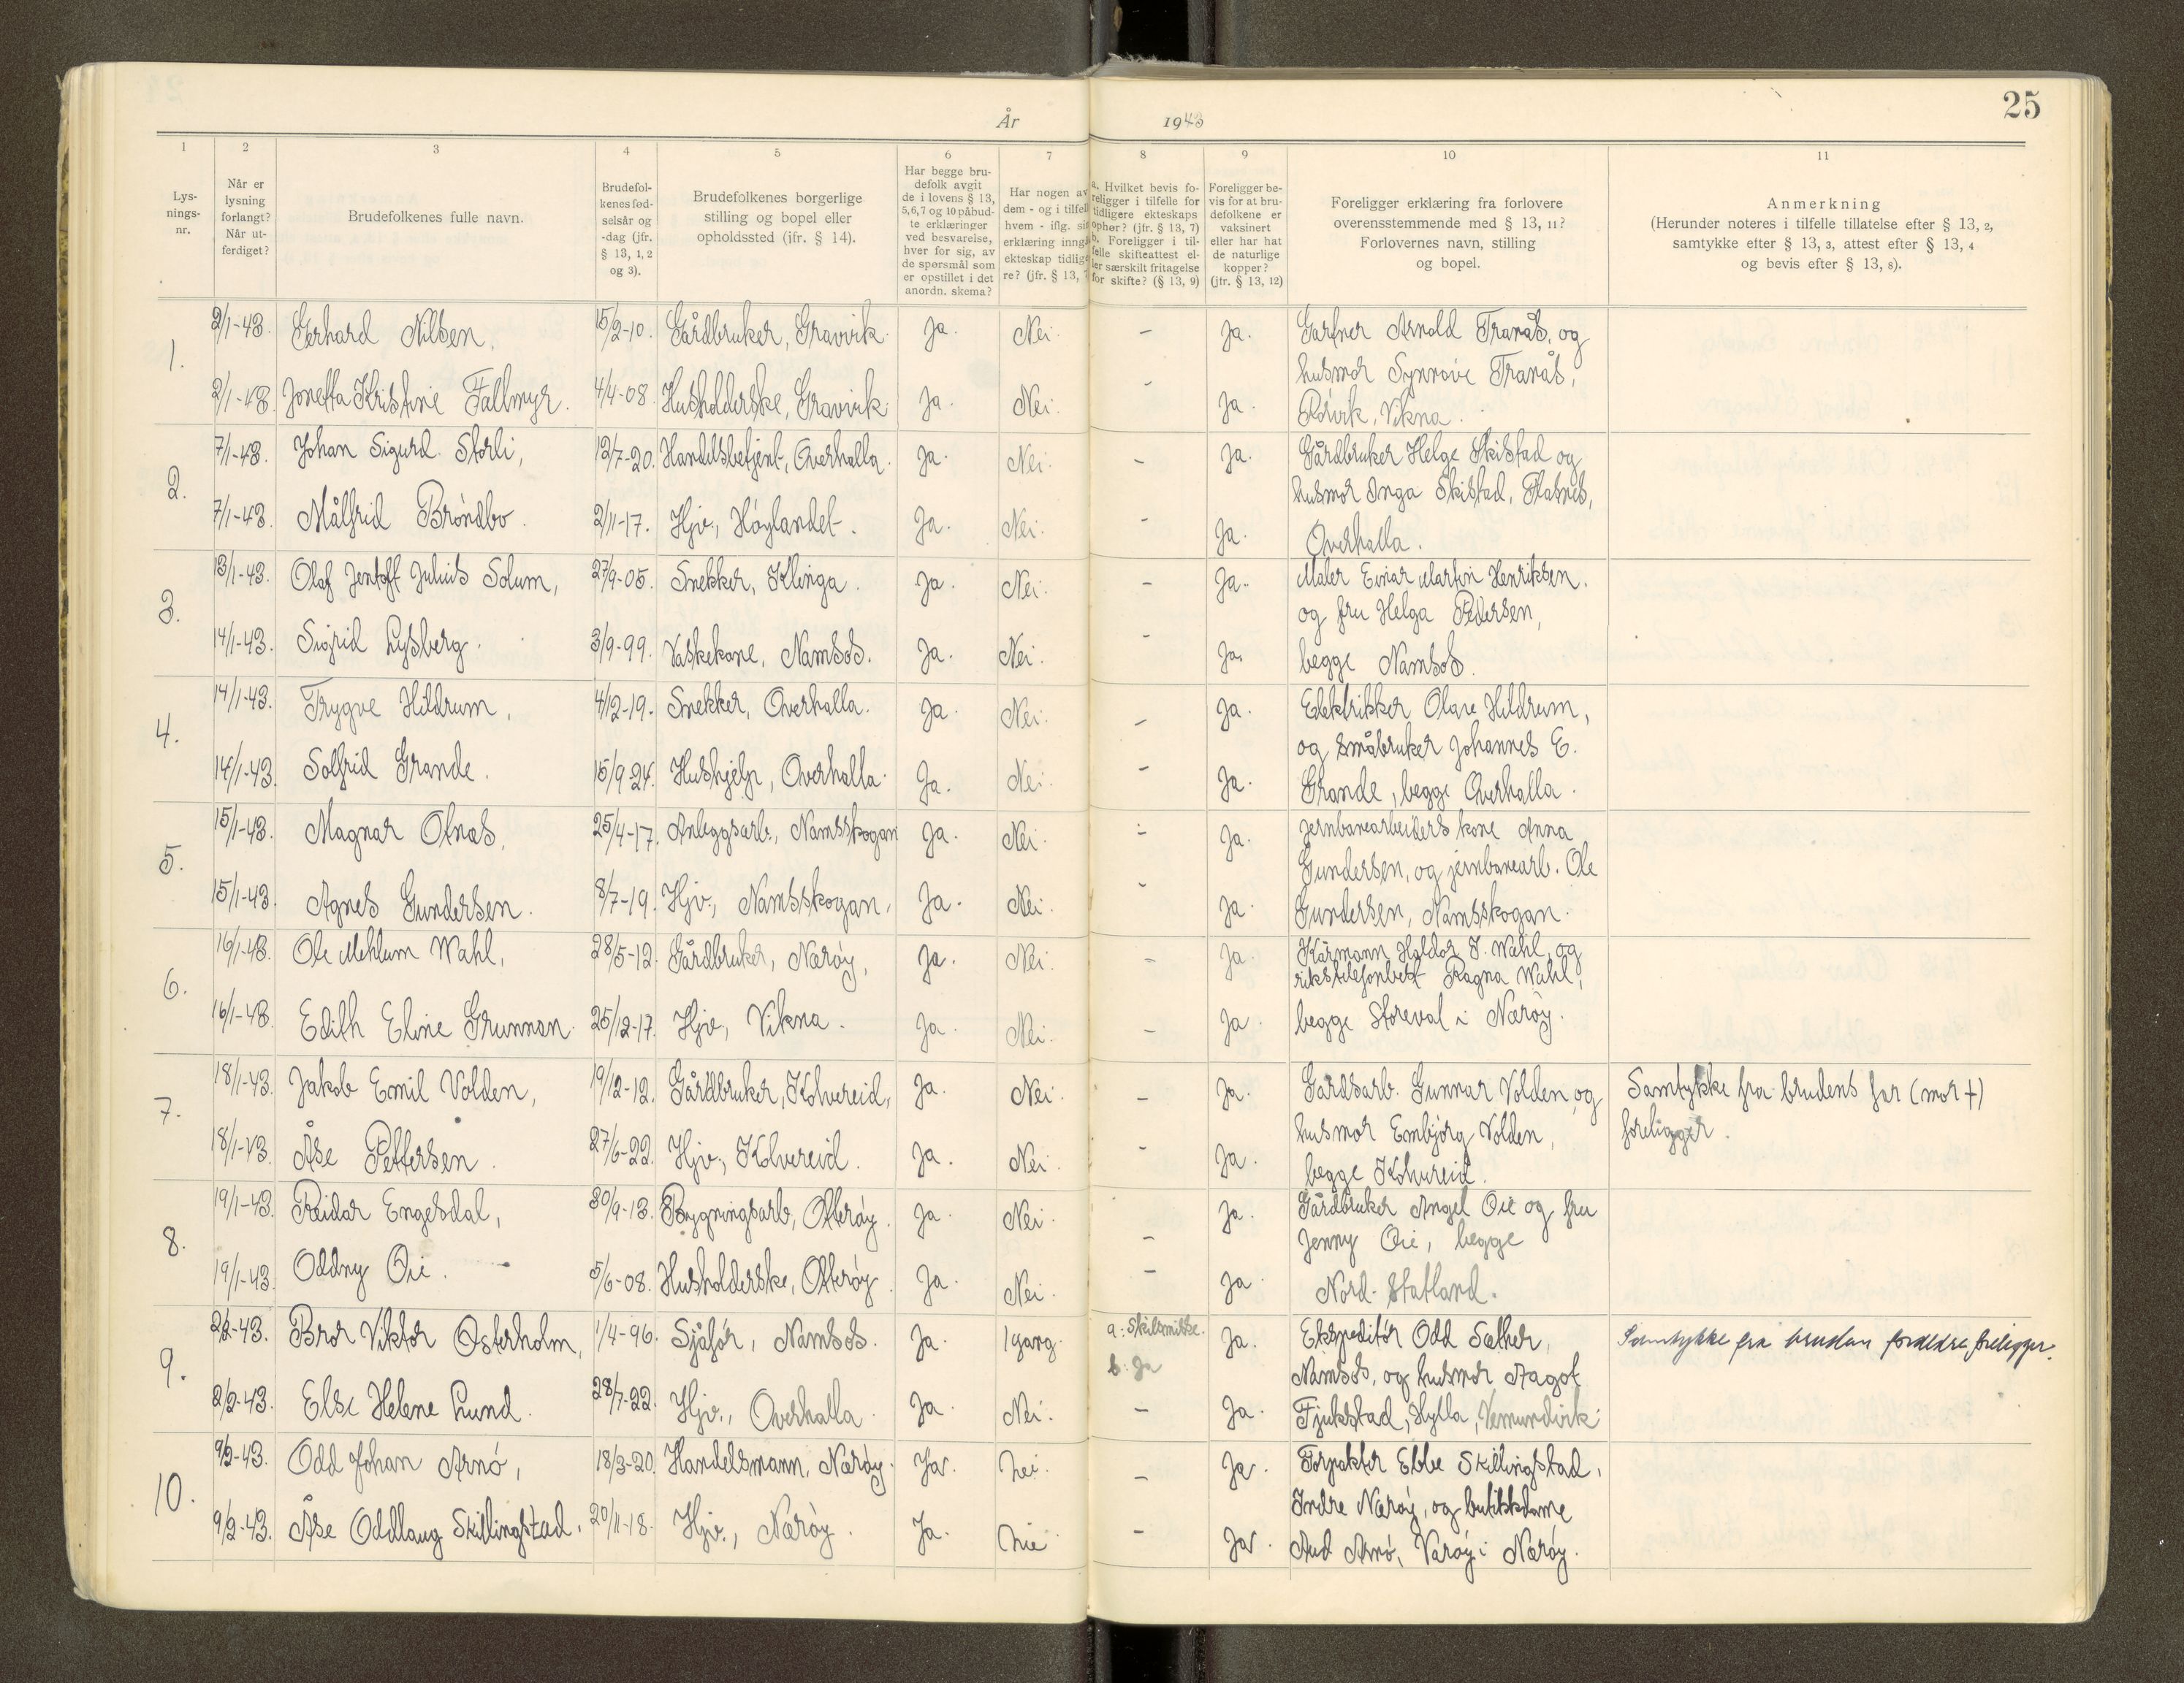 25
År 1943
1 2 3 4 5 6 7 8 9 10 11
Lys-
nings-
nr.
Når er
lysning
forlangt?
Når ut-
ferdiget?
Brudefolkenes fulle navn.
Brudefol-
kenes fød-
selsår og
-dag (jfr.
§ 13, 1, 2
og 3).
Brudefolkenes borgerlige
stilling og bopel eller
opholdssted (jfr. § 14).
Har begge bru-
defolk avgit
de i lovens § 13,
5, 6, 7 og 10 påbud-
te erklæringer
ved besvarelse,
hver for sig, av
de spørsmål som
er opstillet i det
anordn. skema?
Har nogen av
dem - og i tilfelle
hvem - iflg. sin
erklæring inngå
ekteskap tidlige
re? (jfr. § 13, 7
a. Hvilket bevis fo-
religger i tilfelle for
tidligere ekteskaps
ophør? (jfr. § 13, 7)
b. Foreligger i til-
felle skifteattest el-
ler særskilt fritagelse
for skifte? (§ 13, 9)
Foreligger be-
vis for at bru-
defolkene er
vaksinert
eller har hat
de naturlige
kopper?
(jfr. § 13, 12)
Foreligger erklæring fra forlovere
overensstemmende med § 13, 11?
Forlovernes navn, stilling
og bopel.
Anmerkning
(Herunder noteres i tilfelle tillatelse efter § 13, 2,
samtykke efter § 13, 3, attest efter § 13, 4
og bevis efter § 13, 8).
1.
2/1-43. Gerhard Nilsen, 15/2-10. Gårdbruker, Gravvik. Ja. Nei. - Ja.
2/1-43. Jonetta Kristine Fallmyr. 4/4-08. Husholderske, Gravvik. Ja. Nei. - Ja.
Gartner Arnold Tranås, og
husmor Synnøve Tranås,
Rørvik, Vikna.
2.
7/1-43. Johan Sigurd Storli, 12/7-20. Handelsbetjent, Overhalla. Ja. Nei. - Ja.
7/1-43. Målfrid Brøndbo. 2/11-17. Hjv., Høylandet. Ja. Nei. - Ja.
Gårdbruker Helge Skistad og
husmor Inga Skistad, Flasnes,
Overhalla.
3.
13/1-43. Olaf Jentoft Julius Solum, 27/9-05. Snekker, Klinga. Ja. Nei. - Ja.
14/1-43. Sigrid Lysberg. 3/9-99. Vaskekone, Namsos. Ja. Nei. - Ja.
Maler Einar Martin Henriksen.
og fru Helga Pedersen,
begge Namsos.
4.
14/1-43. Trygve Hildrum, 4/12-19. Snekker, Overhalla. Ja. Nei. - Ja.
14/1-43. Solfrid Grande. 15/9-24. Hushjelp, Overhalla. Ja. Nei. - Ja.
Elektrikker Olave Hildrum,
og småbruker Johannes E.
Grande, begge Overhalla.
5.
15/1-43. Magnar Olnes, 25/4-17. Anleggsarb., Namsskogan Ja. Nei. - Ja.
15/1-43. Agnes Gundersen. 8/7-19. Hjv., Namsskogan. Ja. Nei. - Ja.
Jernbanearbeiders kone Anna
Gundersen, og jernbanearb. Ole
Gundersen, Namsskogan.
6.
16/1-43. Ole Mehlum Wahl, 28/5-12. Gårdbruker, Nærøy, Ja. Nei. - Ja.
16/1-43. Edith Eline Grunnan. 25/12-17. Hjv., Vikna. Ja. Nei. - Ja.
Kårmann Haldor J. Wahl, og
rikstelefonbest Ragna Wahl,
begge Storeval i Nærøy.
7.
18/1-43. Jakob Emil Volden, 19/12-12. Gårdbruker, Kolvereid, Ja. Nei. - Ja.
18/1-43. Åse Pettersen. 27/6-22. Hjv., Kolvereid. Ja. Nei. - Ja.
Gårdsarb. Gunnar Volden og
husmor Embjørg Volden,
begge Kolvereid.
Samtykke fra brudens far (mor †)
foreligger.
8.
19/1-43. Reidar Engesdal, 30/9-13. Bygningsarb, Otterøy. Ja. Nei. - Ja.
19/1-43. Oddny Øie. 5/6-08. Husholderske, Otterøy. Ja. Nei. - Ja
Gårdbruker Angel Øie og fru
Jenny Øie, begge
Nord-Statland.
9.
2/2-43. Bror Viktor Østerholm, 1/4-96. Sjåfør, Namsos. Ja. 1 gang. a: Skilsmisse. b: Ja Ja.
2/2-43. Else Helene Lund. 28/7-22. Hjv., Overhalla. Ja. Nei. - Ja.
Ekspeditør Odd Sæther,
Namsos, og husmor Aagot
Fjukstad, Hylla, Vemundvik.
Samtykke fra brudens foreldre foreligger.
10.
9/2-43. Odd Johan Arnø, 18/3-20. Handelsmann, Nærøy. Ja. Nei. - Ja.
9/2-43. Åse Oddlaug Skillingstad. 20/11-18. Hjv., Nærøy. Ja. Nei - Ja.
Forpakter Ebbe Skillingstad,
Indre Nærøy, og butikkdame
Aud Arnø, Værøy i Nærøy.